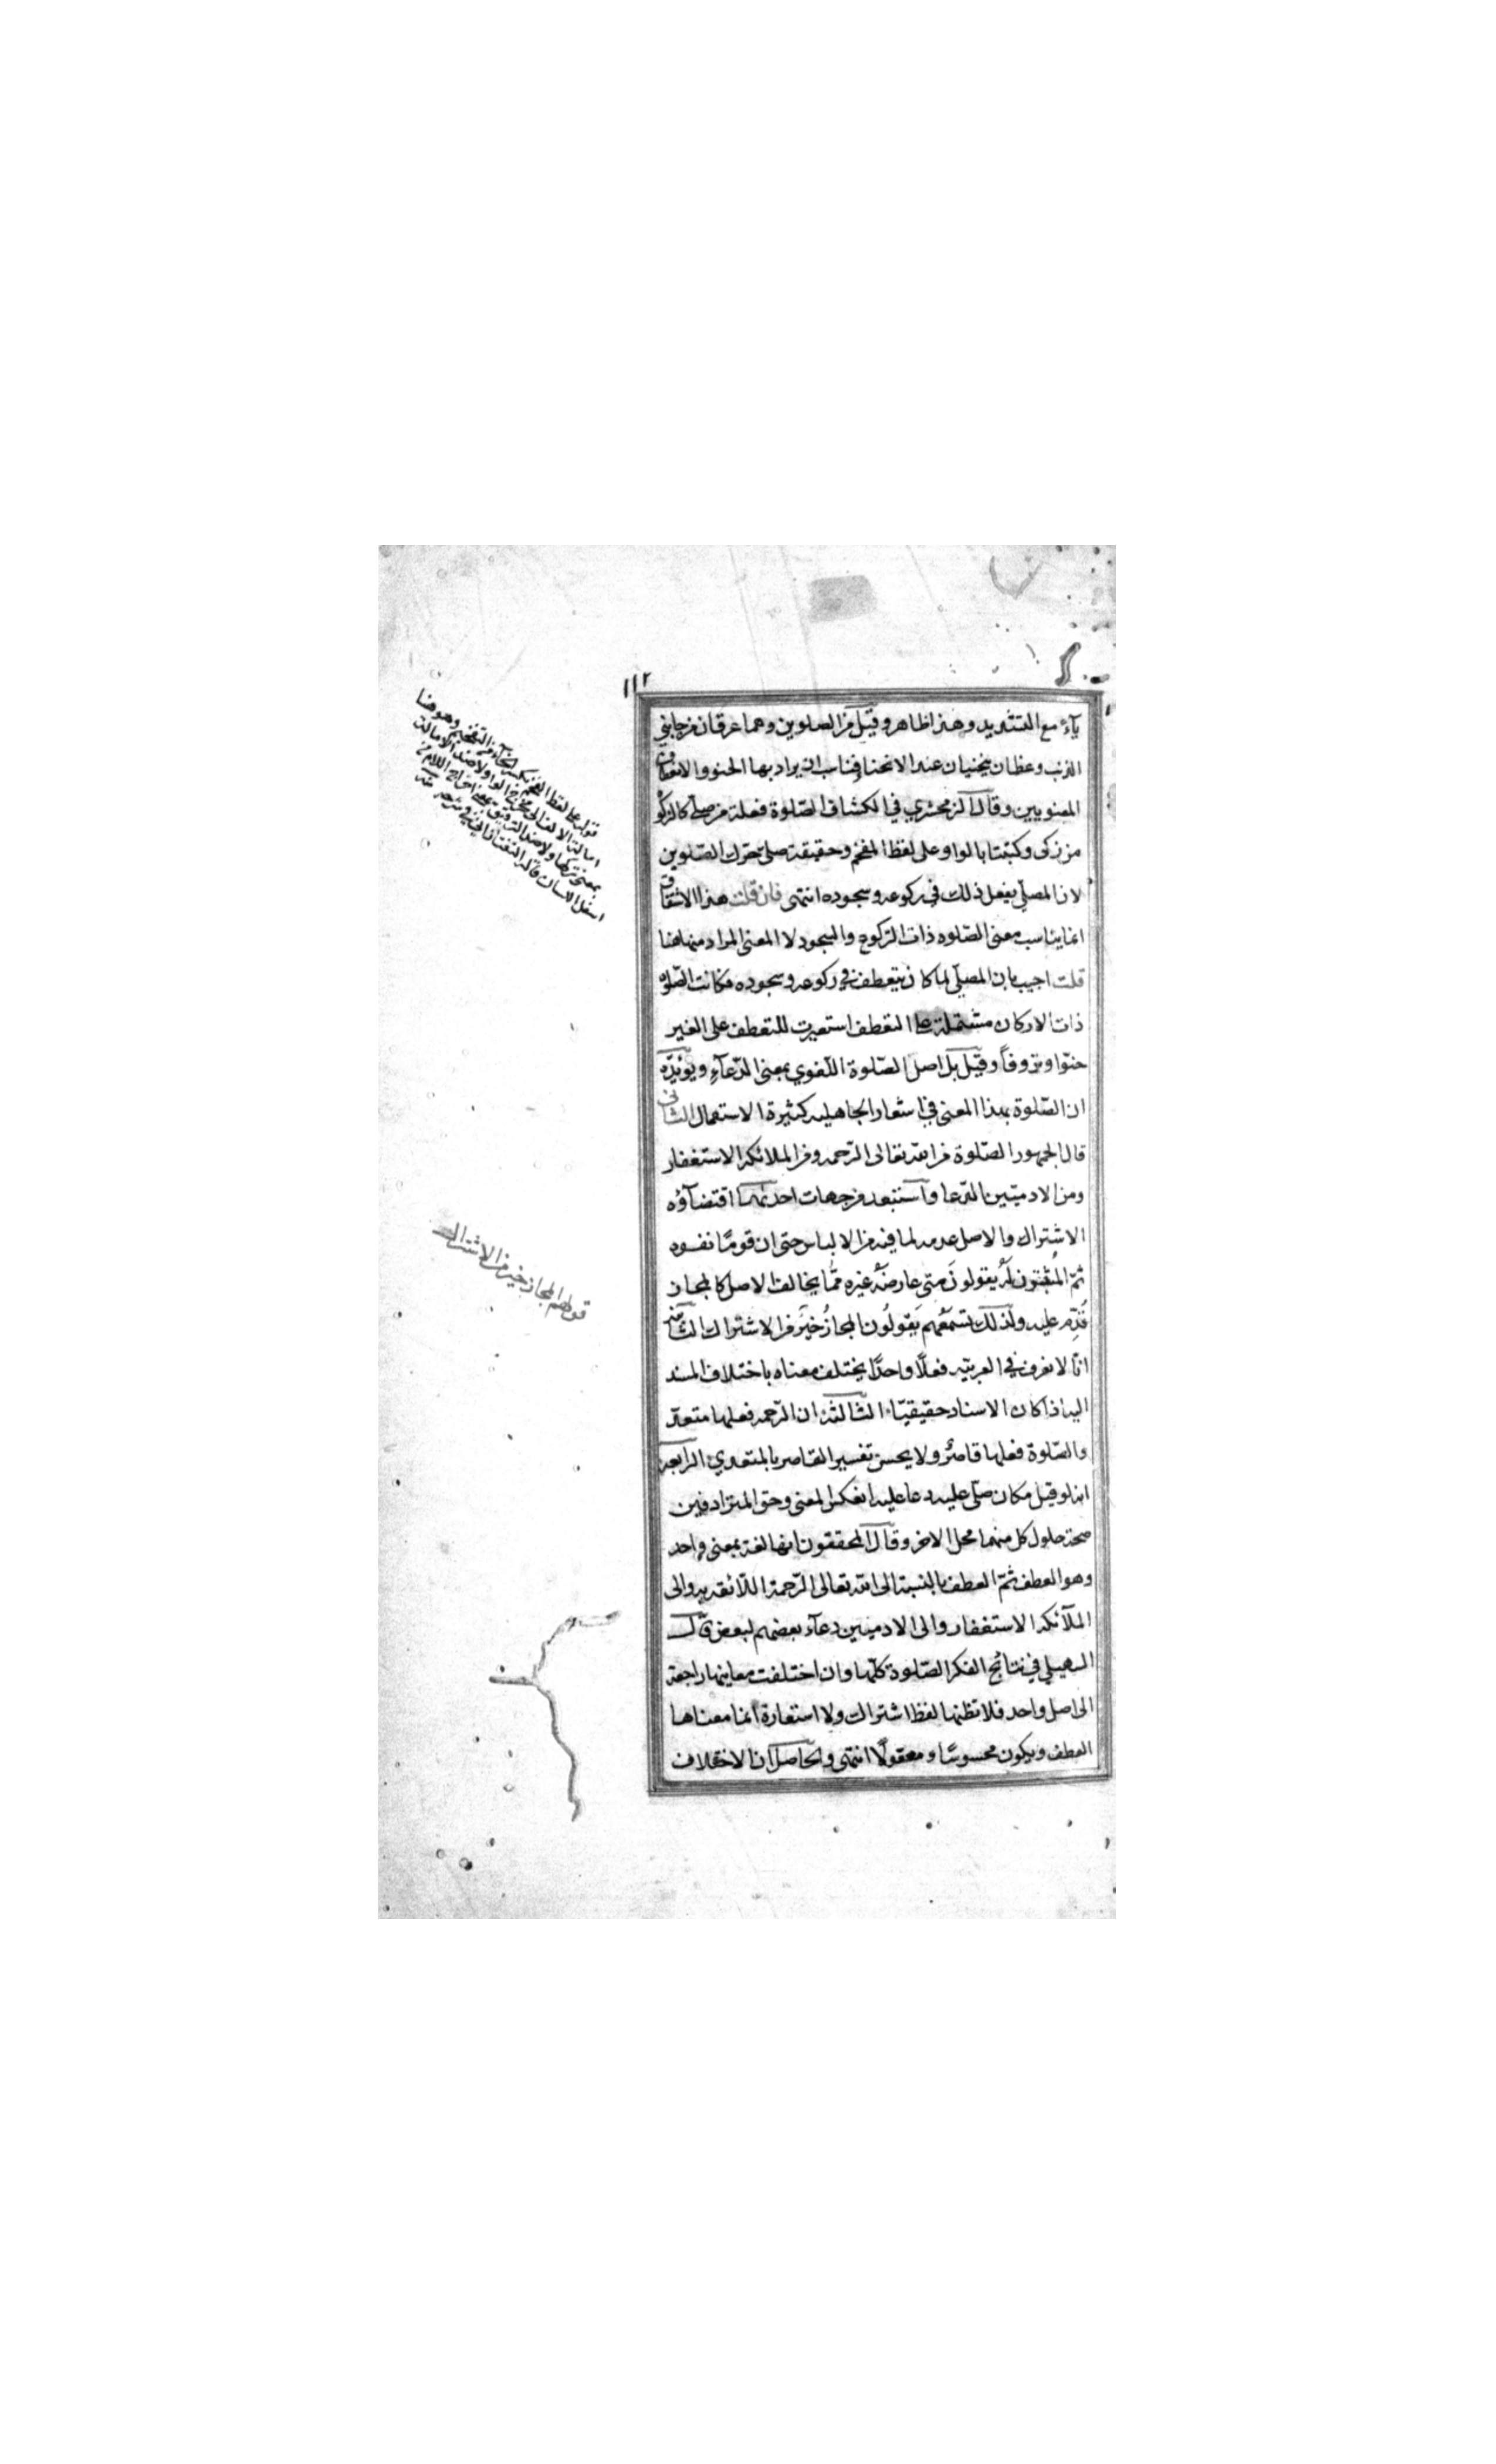 ١١٢
يآء مع التشديد وهذا ظاهر وقيل من الصلوين وهما عرقان من جانبي
الذنب وعظمان ينحنيان عند الانحنا فناسب ان يراد بها الحنو والانعطاف
المعنويين وقال الزمخشري في الكشاف الصّلوة فعلة من صلّى كالزكوة
من زكى وكتبتا بالواو على لفظ المفخم وحقيقة صلى حرّك الصّلوين
لان المصلّي يفعل ذلك في ركوعه وسجوده انتهى فان قلت هذا الاشتقاق
انما يناسب معنى الصّلوه ذات الرّكوع والسجود لا المعنى المراد منها هنا
قلت اجيب بان المصلّي لما كان يتعطف في ركوعه وسجوده فكانت الصّلوة
ذات الاركان مشتملة على التعطف استعيرت للتعطف على الغير
حنوّا وتروفاً وقيل بل اصل الصّلوة اللّغوي بمعنى الدّعآء ويؤيّده
ان الصّلوة بهذا المعنى في اشعار الجاهليه كثيرة الاستعمال الثاني
قال الجمهور الصّلوة من الله تعالى الرّحمه ومن الملائكه الاستغفار
ومن الادميّين الدّعا وآستبعد من جهات احدها اقتضآؤه
الاشتراك والاصل عدمه لما فيه من الالباس حتى ان قومًا نفوه
ثمّ المُثبتون لَهُ يقولونَ متى عارضَهُ غيره ممّا يخالف الاصل كالمجاز
قُدّم عليه ولذلك تسمعُهم يَقولُون المجازُ خيَر من الاشتراك الثانية
انّا لا نعرف في العربيّه فعلًا واحدًا يختلف معناه باختلاف المسند
اليه اذا كان الاسناد حقيقيّا، الثّالثة ان الرّحمه فعلها متعدّ
والصّلوة فعلها قاصرٌ ولا يحسن تفسير القاصر بالمتعدي الرابعة
انه لو قيل مكان صلّى عليه دعا عليه انعكس المعنى وحق المترادفين
صحة حلول كل منهما محل الاخر وقال المحققون انها لغة بمعنى واحد
وهو العطف ثمّ العطف بالنسبة الى الله تعالى الرّحمة اللّائقة به والى
الملآئكة الاستغفار والى الادميين دعآء بعضهم لبعض قال
السهيلي في نتائج الفكر الصّلوة كلّها وان اختلفت معانيها راجعة
الى اصل واحد فلا تظنها لفظ اشتراك ولا استعارة انما معناها
العطف ويكون محسوسًا ومعقولًا انتهى والحاصل ان الاختلاف
قوله على لفظ المفخم بكسر الخآء من التفخيم وهو هنا
امالة الالف الى مخرج الواو لا ضد الامالة
بمعنى تركها ولا ضد الترقيق بمعنى اخراج اللام من
اسفل اللسان قاله التفتازاني في شرحه
قولهم المجاز خير من الاشتراك